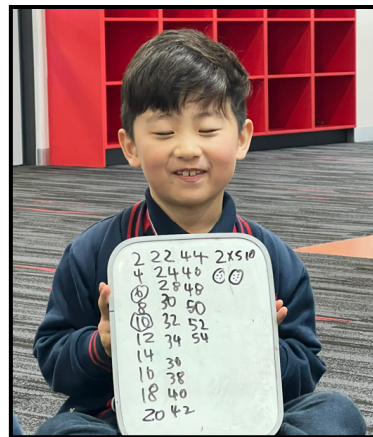 2 22 44 2x510
4 24 46
6 28 48
8 30 50
10 32 52
12 34 54
14
16 36
18 38
20 40
42